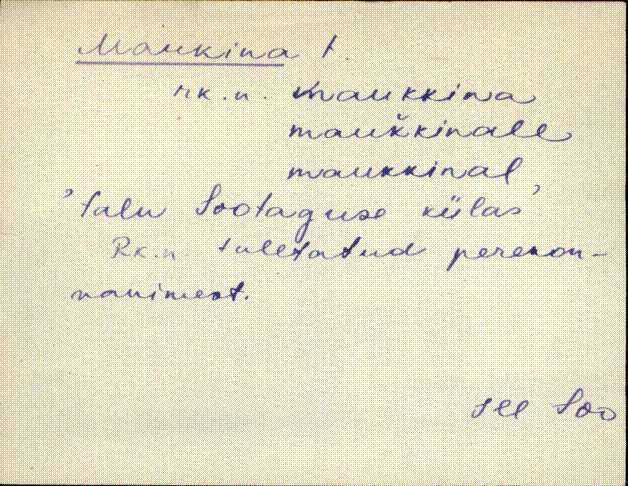 Maukina t.
rk.n. maukkina
mau̬kkinalle
maukkinal
'talu Sootaguse külas'
Rk.n. tuletatud perekon-
nanimest.
Soo